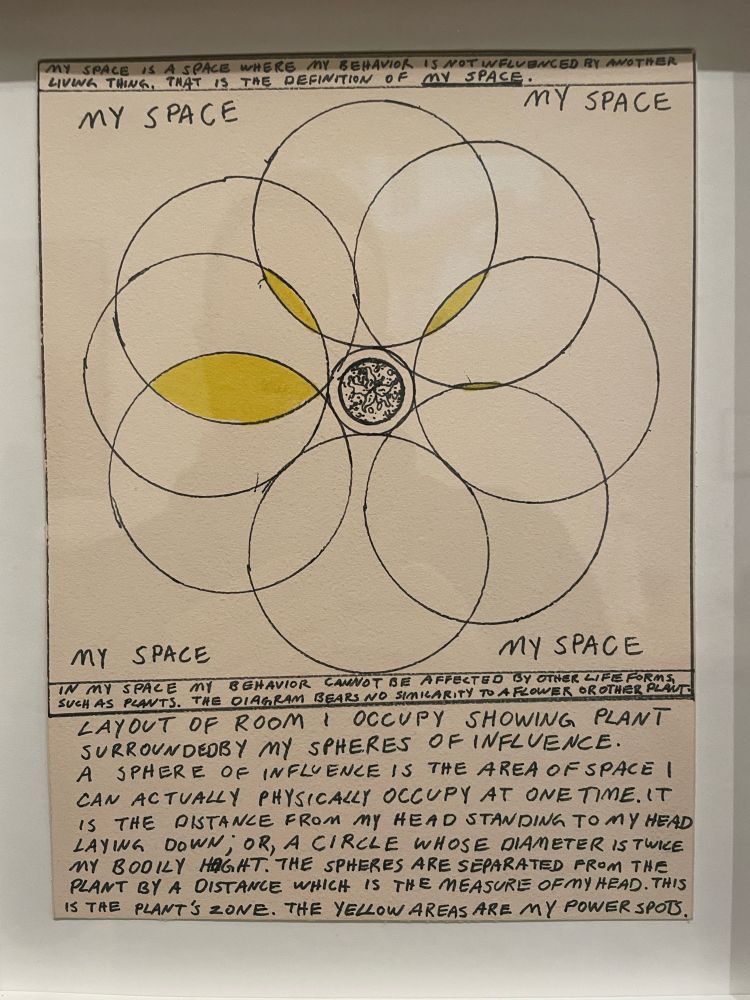 MY SPACE IS A SPACE WHERE MY BEHAVIOR IS NOT INFLUENCED BY ANOTHER
LIVING THING. THAT IS THE DEFINITION OF MY SPACE.
MY SPACE
MY SPACE
MY SPACE
MY SPACE
IN MY SPACE MY BEHAVIOR CANNOT BE AFFECTED BY OTHER LIFE FORMS,
SUCH AS PLANTS. THE DIAGRAM BEARS NO SIMILARITY TO A FLOWER OR OTHER PLANT.
LAYOUT OF ROOM I OCCUPY SHOWING PLANT
SURROUNDEDBY MY SPHERES OF INFLUENCE.
A SPHERE OF INFLUENCE IS THE AREA OF SPACE I
CAN ACTUALLY PHYSICALLY OCCUPY AT ONE TIME. IT
IS THE DISTANCE FROM MY HEAD STANDING TO MY HEAD
LAYING DOWN; OR, A CIRCLE WHOSE DIAMETER IS TWICE
MY BODILY HIGHT. THE SPHERES ARE SEPARATED FROM THE
PLANT BY A DISTANCE WHICH IS THE MEASURE OF MY HEAD. THIS
IS THE PLANT'S ZONE. THE YELLOW AREAS ARE MY POWER SPOTS.